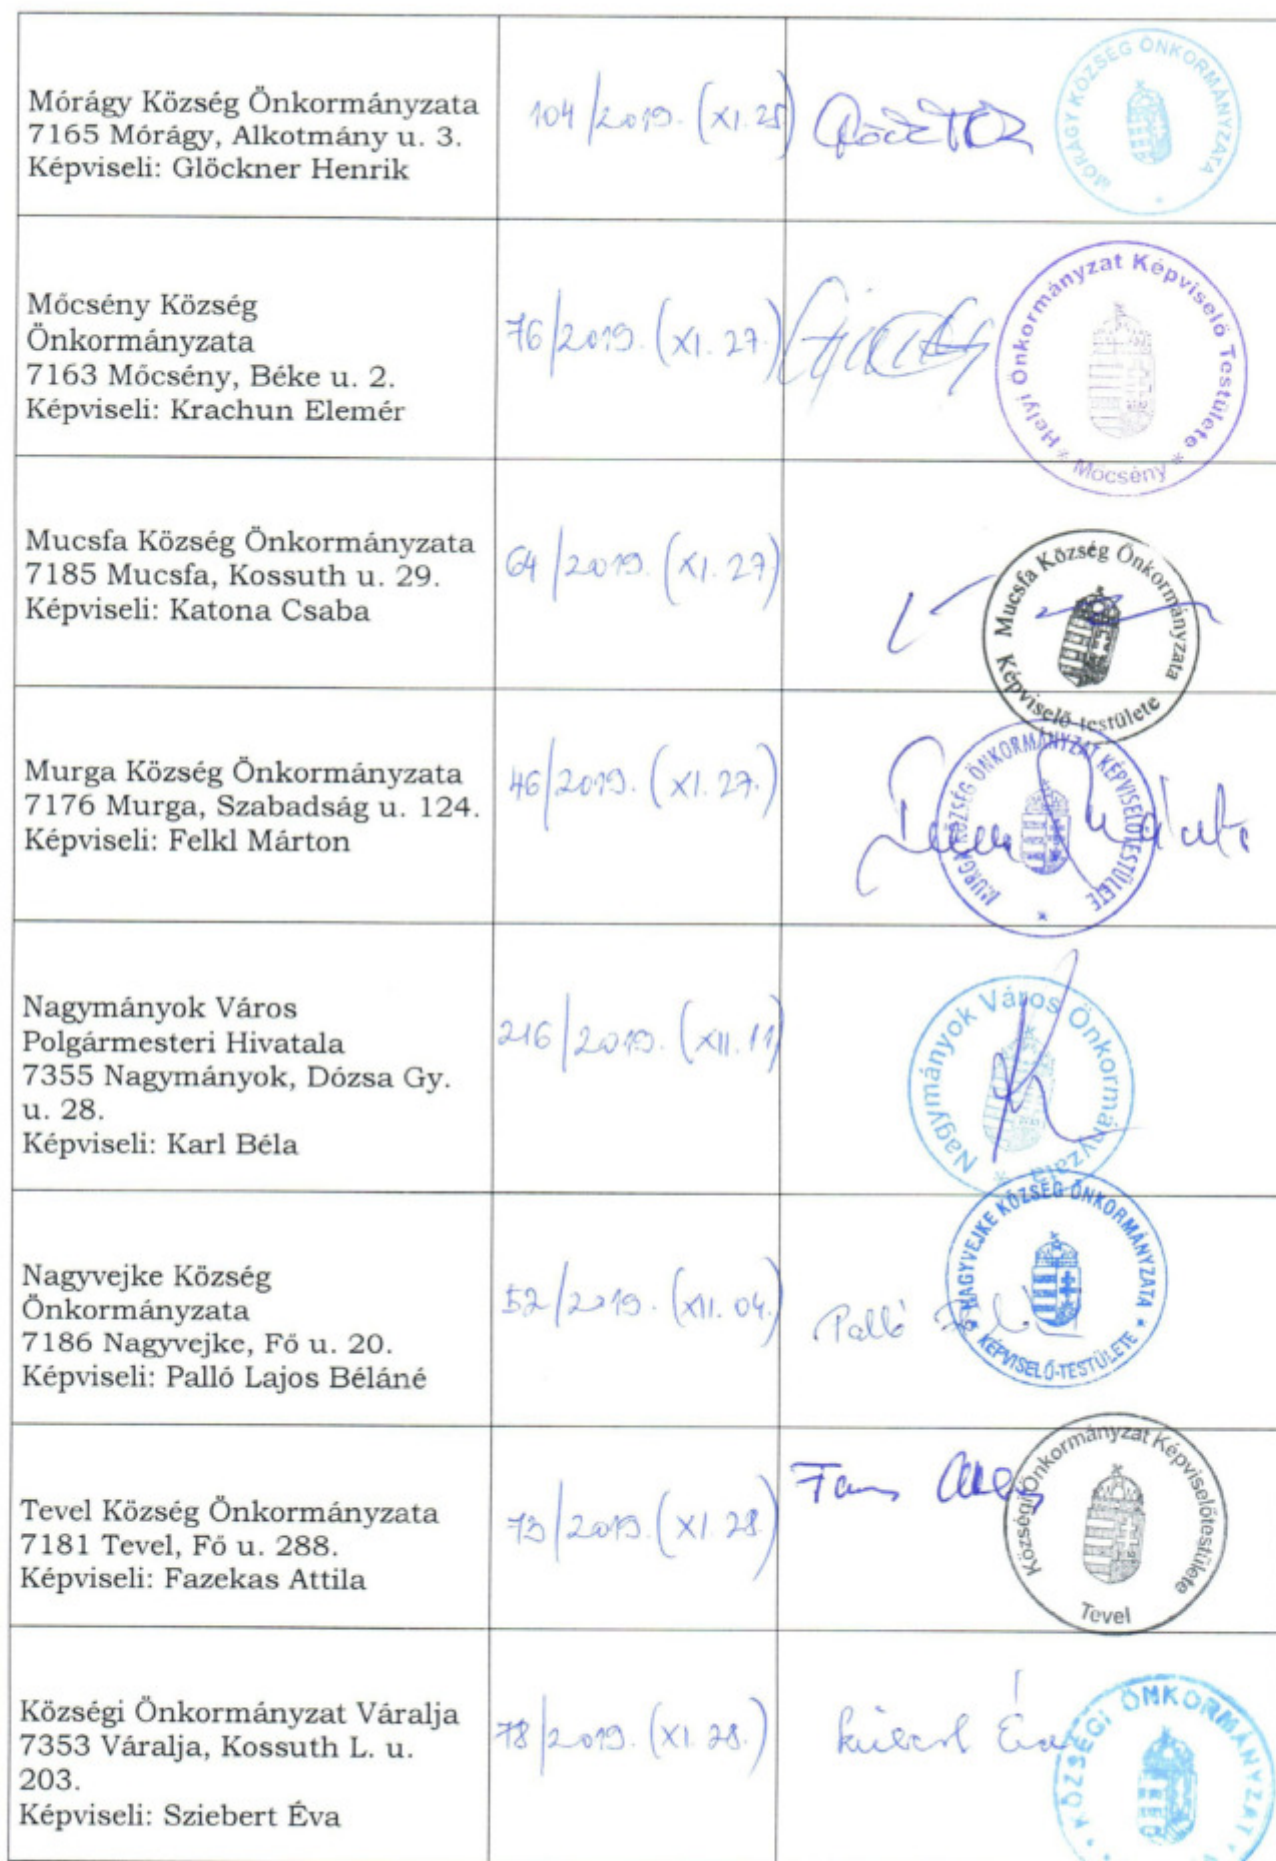 Mórágy Község Önkormányzata
7165 Mórágy, Alkotmány u. 3.
Képviseli: Glöckner Henrik
104/2019. (XI. 25)
MÓRÁGY KÖZSÉG ÖNKORMÁNYZATA
Mőcsény Község
Önkormányzata
7163 Mőcsény, Béke u. 2.
Képviseli: Krachun Elemér
76/2019. (XI. 27.)
Helyi Önkormányzat Képviselő Testülete * Mocsény *
Mucsfa Község Önkormányzata
7185 Mucsfa, Kossuth u. 29.
Képviseli: Katona Csaba
64/2019. (XI. 27)
Mucsfa Község Önkormányzata
Képviselő testülete
Murga Község Önkormányzata
7176 Murga, Szabadság u. 124.
Képviseli: Felkl Márton
46/2019. (XI. 27.)
MURGA KÖZSÉG ÖNKORMÁNYZAT KÉPVISELŐTESTÜLETE *
Nagymányok Város
Polgármesteri Hivatala
7355 Nagymányok, Dózsa Gy.
u. 28.
Képviseli: Karl Béla
216/2019. (XII. 11)
Nagymányok Város Önkormányzata *
Nagyvejke Község
Önkormányzata
7186 Nagyvejke, Fő u. 20.
Képviseli: Palló Lajos Béláné
52/2019. (XII. 04.)
Palló
NAGYVEJKE KÖZSÉG ÖNKORMÁNYZATA
* KÉPVISELŐ-TESTÜLETE *
Tevel Község Önkormányzata
7181 Tevel, Fő u. 288.
Képviseli: Fazekas Attila
73/2019. (XI. 28.)
Községi Önkormányzat Képviselőtestülete
Tevel
Községi Önkormányzat Váralja
7353 Váralja, Kossuth L. u.
203.
Képviseli: Sziebert Éva
78/2019. (XI. 28.)
Éva
KÖZSÉGI ÖNKORMÁNYZAT